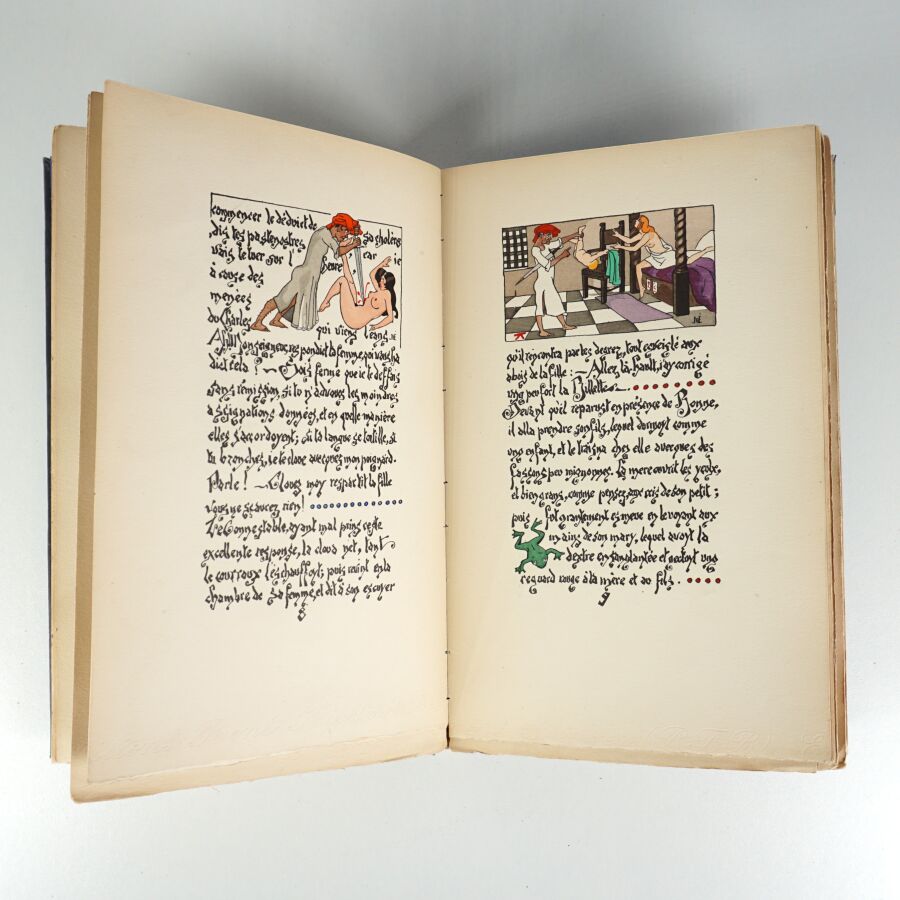 commencer le déduict de
dis tes pastenostres sa cholère
vais te tuer sur l'heure car ie
a cause des
menées
du Charles
qui viens céans
Ah! Monseigneur, respondit la femme, qui vous ha
dict cela? — Crois ferme que ie te deffais
sans remission, si tu n'advoues les moindres
assignations données, et en quelle manière
elles s'accordoyent; si ta langue se tortille, si
tu bronches, ie te cloue avecques mon poignard.
Parle! — Clouez moy respartit la fille
vous ne sçaurez rien!
Le Connestable, ayant mal prins ceste
excellente response, la cloua net, tant
le courroux l'eschauffoyt; puis revint en la
chambre de sa femme, et dit à son escuyer
8
qu'il rencontra par les degrez, tout esveiglé aux
abois de la fille: — Allez là-hault, i'ay corrigé
ung peu fort la Billette.
Devant qu'il reparust en présence de Bonne,
il alla prendre son fils, lequel dormoyt comme
ung enfant, et le traisna chez elle avecques des
fassons peu mignonnes. La mère ouvrit les yeulx,
et bien grans, comme pensez, aux cris de son petit;
puis fut grantement esmeue en le voyant aux
mains de son mary, lequel avoyt la
dextre ensanglantée et gectoyt ung
reguard rouge à la mère et au fils.
9